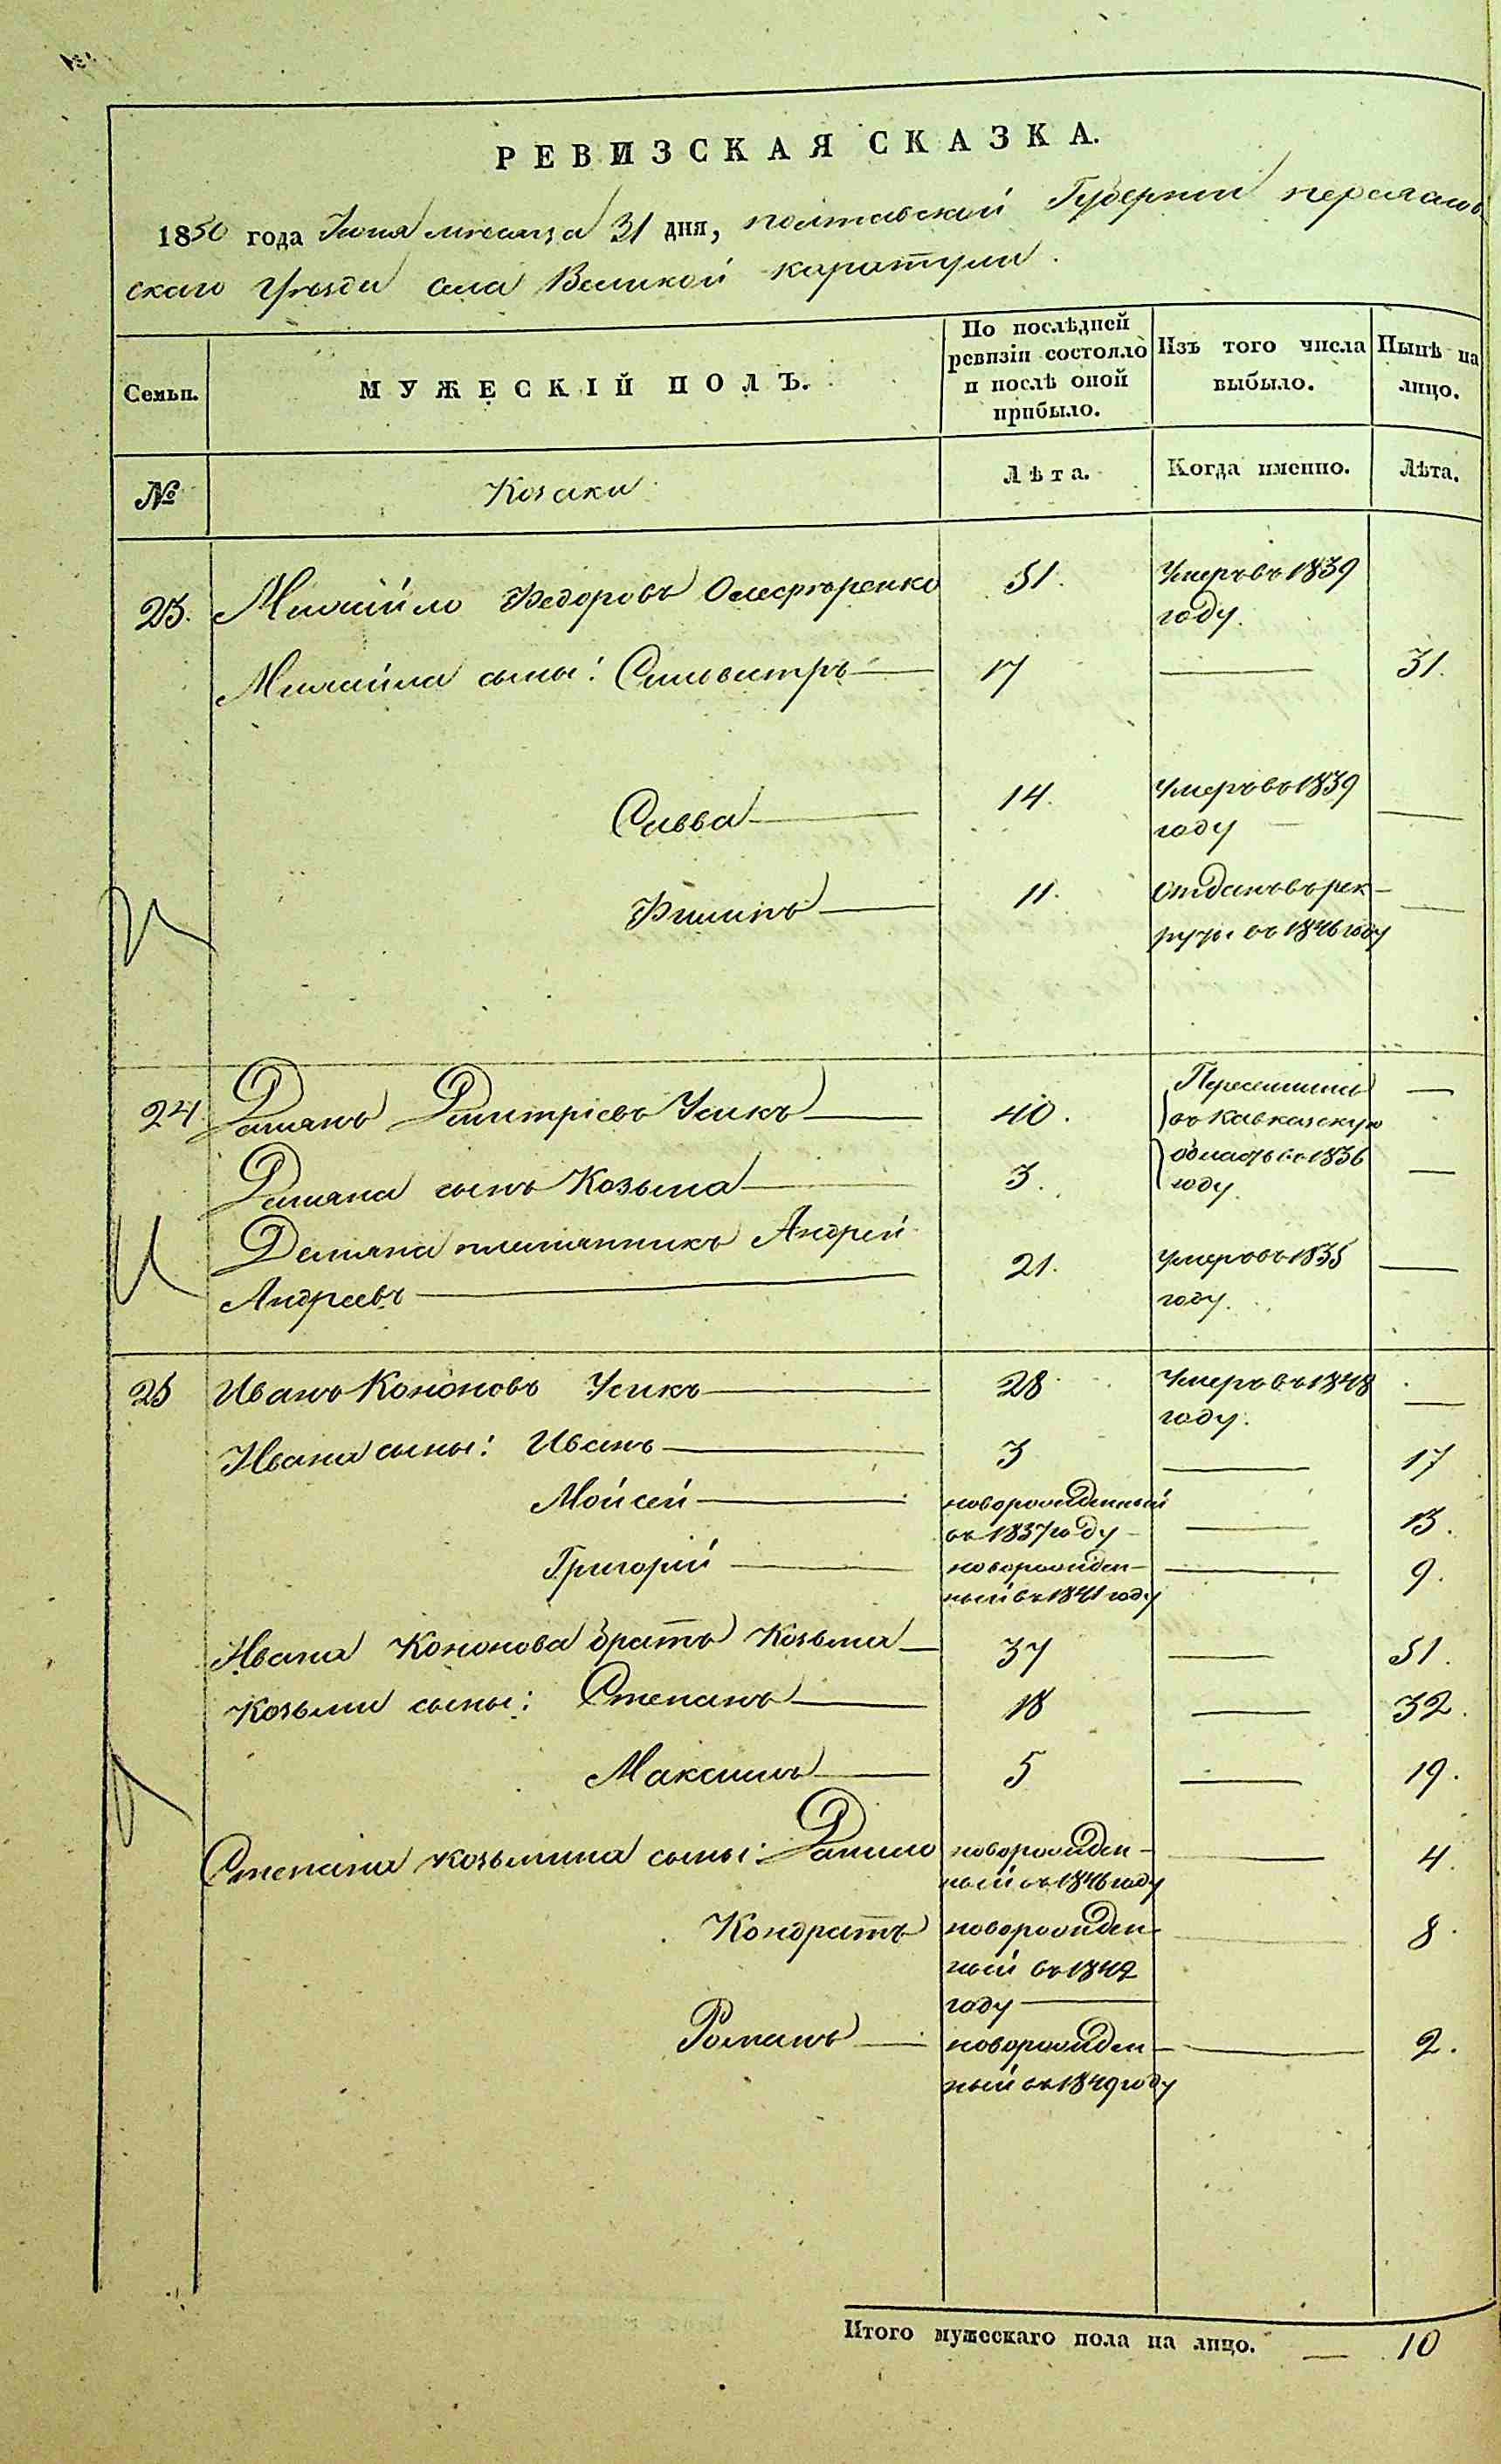 РЕВИЗСКАЯ СКАЗКА.
1850 года Июня месяца 31 дня, полтавской Губернии переяслав
скаго Уезда села Великой каратули.
Семьи.
МУЖЕСКІЙ ПОЛЪ.
По послѣдней
ревизіи состояло
и послѣ оной
прибыло.
Изъ того числа
выбыло.
Нынѣ на
лицо.
№
Козаки
Лѣта.
Когда именно.
Лѣта.
23. Михайло Федоровъ 51. Умеръ въ 1839
году.
Михайла сыны: Силвестръ 17 31.
Савва 14. Умеръ въ 1839
году
Филипъ 11. Отданъ въ рек-
руты въ 1846 году
24 Дамянъ Дмитріевъ Усикъ 40. Переселились
въ Кавказскую
Дамяна сынъ Козьма 3. область въ 1836
году.
Демяна племянникъ Андрей
Андреевъ 21. Умеръ въ 1835
году.
25 Иванъ Кононовъ Усикъ 28 Умеръ въ 1848
году.
Ивана сыны: Иванъ 3 17
Мойсей новорожденный
въ 1837 году 13.
Григорій новорожден-
ный въ 1841 году 9.
Ивана Кононова братъ Козьма 37 51.
Козьми сыны: Степанъ 18 32.
Максимъ 5 19.
Степана Козьмина сыны: Данило новорожден-
ный въ 1846 году 4.
Кондратъ новорожден-
ный въ 1842
году 8
Романъ новорожден-
ный въ 1849 году 2.
Итого мужескаго пола на лицо. 10